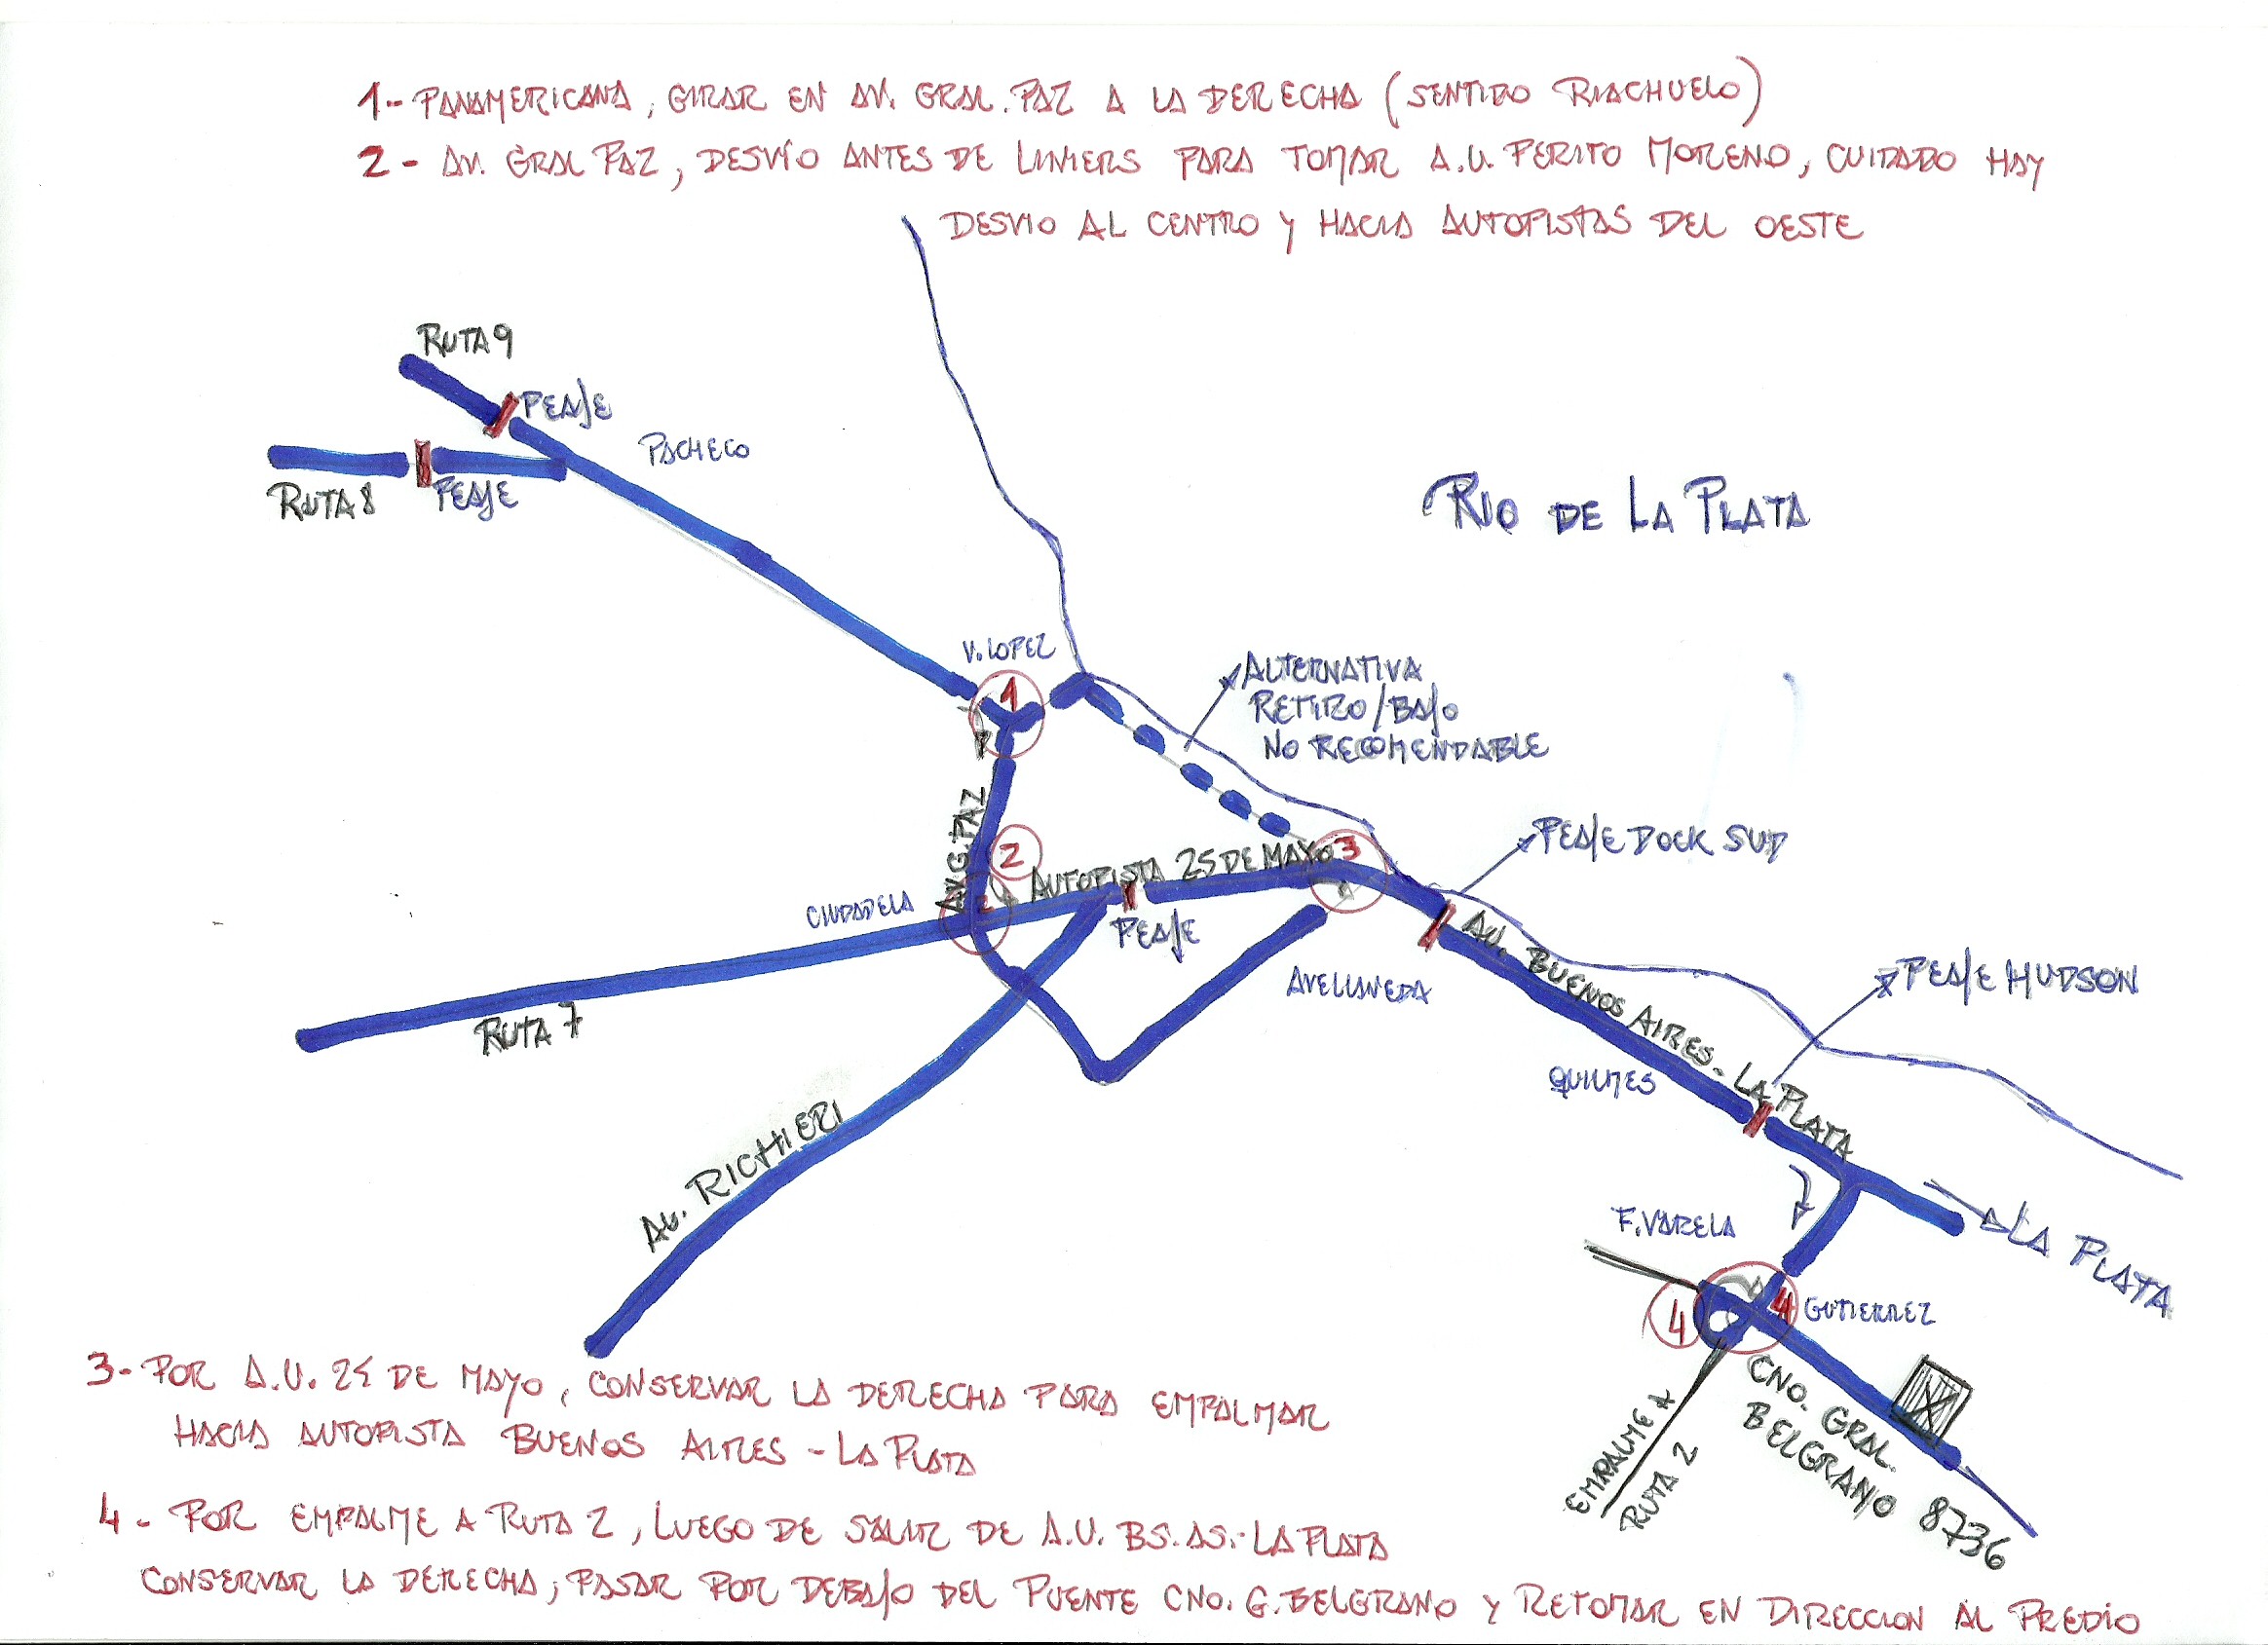 1- PANAMERICANA, GIRAR EN AV. GRAL. PAZ A LA DERECHA (SENTIDO RIACHUELO)
2- AV. GRAL PAZ, DESVÍO ANTES DE LINIERS PARA TOMAR A.U. PERITO MORENO, CUIDADO HAY
DESVIO AL CENTRO Y HACIA AUTOPISTAS DEL OESTE
RUTA 9
PEAJE
PACHECO
RUTA 8
PEAJE
RIO DE LA PLATA
V. LOPEZ
1
ALTERNATIVA
RETIRO/BAJO
NO RECOMENDABLE
AV. G. PAZ
2
2
AUTOPISTA 25 DE MAYO
3
PEAJE DOCK SUD
CIUDADELA
PEAJE
AVELLANEDA
RUTA 7
AU. BUENOS AIRES - LA PLATA
PEAJE HUDSON
QUILMES
AU. RICHIERI
F. VARELA
LA PLATA
4
4
GUTIERREZ
CNO. GRAL.
BELGRANO 8736
EMPALME A
RUTA 2
3- POR A.U. 25 DE MAYO, CONSERVAR LA DERECHA PARA EMPALMAR
HACIA AUTOPISTA BUENOS AIRES - LA PLATA
4- POR EMPALME A RUTA 2, LUEGO DE SALIR DE A.U. BS.AS.-LA PLATA
CONSERVAR LA DERECHA, PASAR POR DEBAJO DEL PUENTE CNO. G. BELGRANO Y RETOMAR EN DIRECCION AL PREDIO